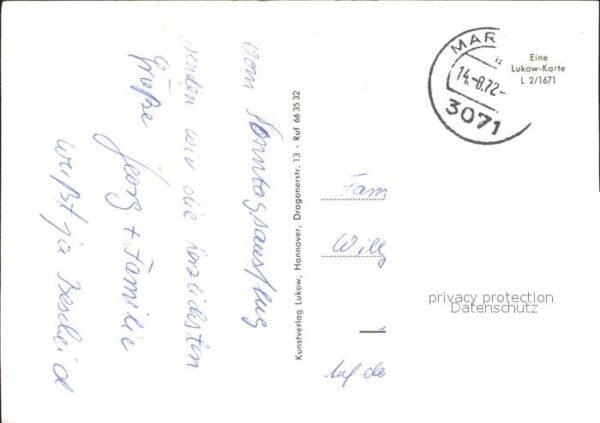 vom Sonntagsausflug
senden wir die herzlichsten
Grüße Georg + Familie
weißt ja Bescheid
Kunstverlag Lukow, Hannover, Dragonerstr. 13 · Ruf 66 35 32
MAR
14.-8.72-
3071
Eine
Lukow-Karte
L 2/1671
Fam
Will
Auf de
privacy protection
Datenschutz